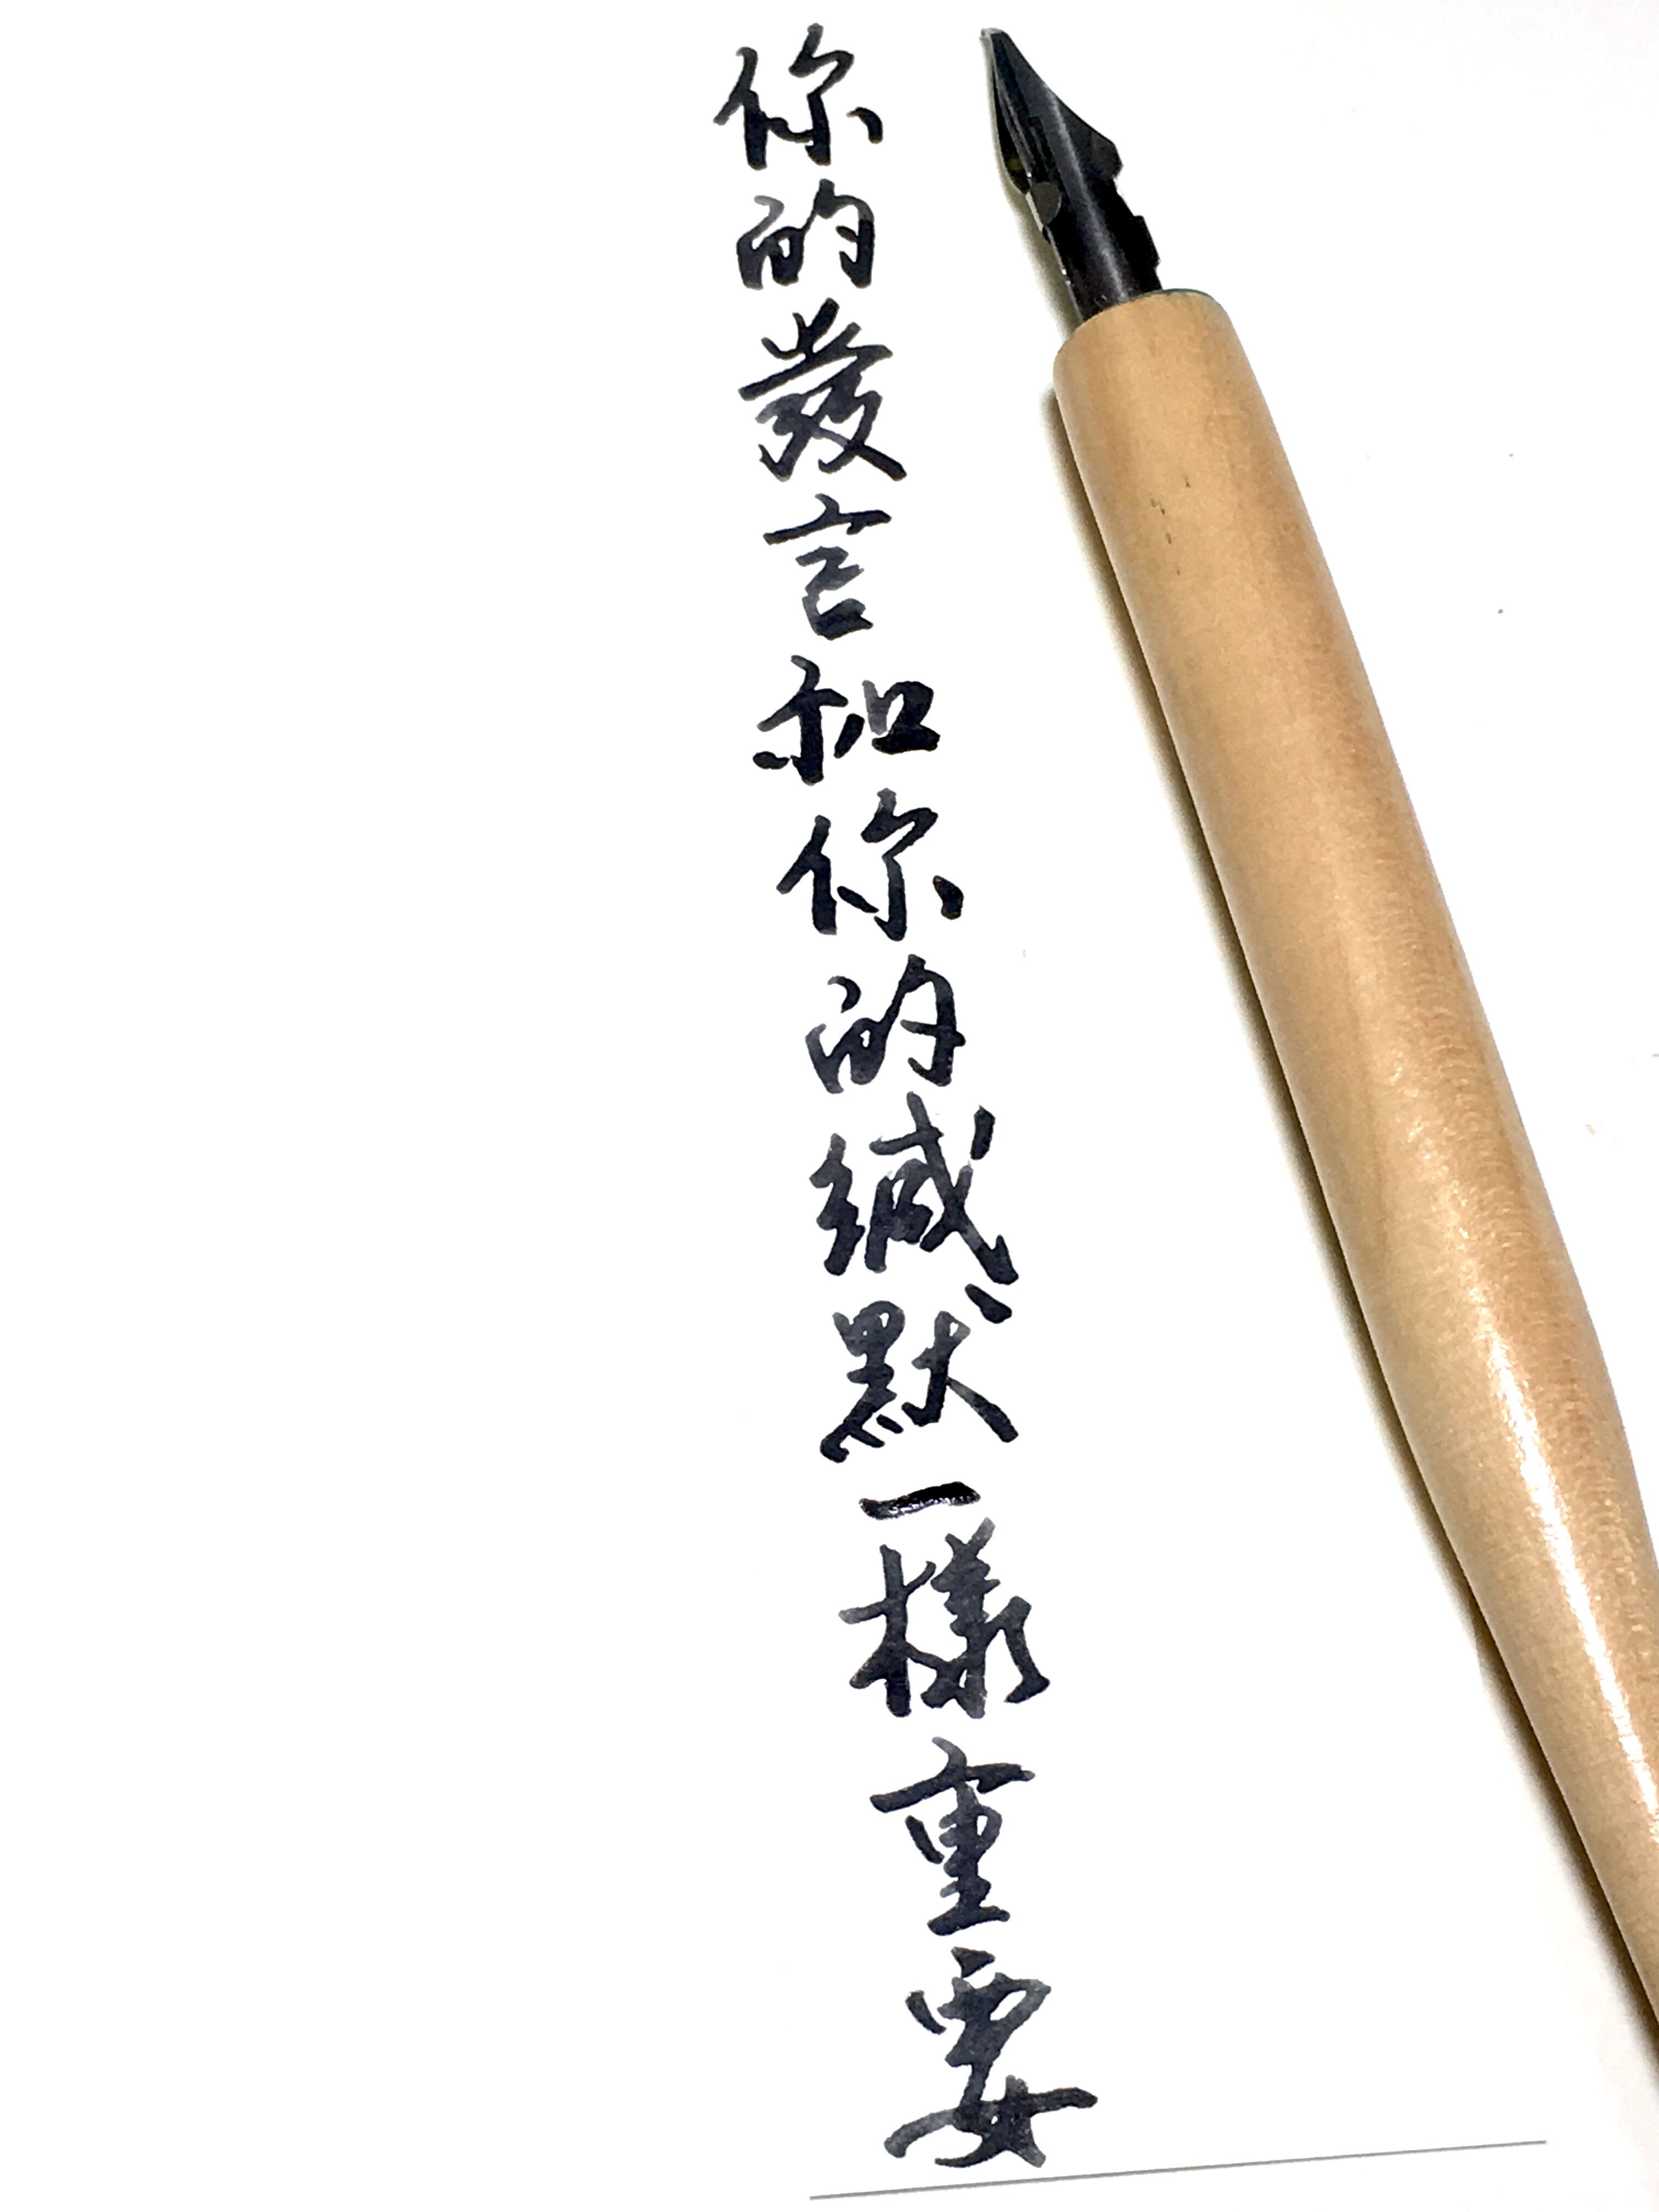 你的發言和你的緘默一樣重要